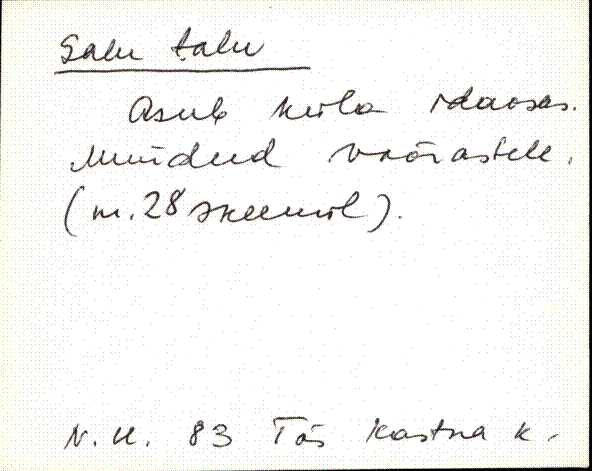 Salu talu
Asub küla idaosas.
Müüdud võõrastele.
(nr. 28 skeemil).
N. U. 83 Tõs Kastna k.